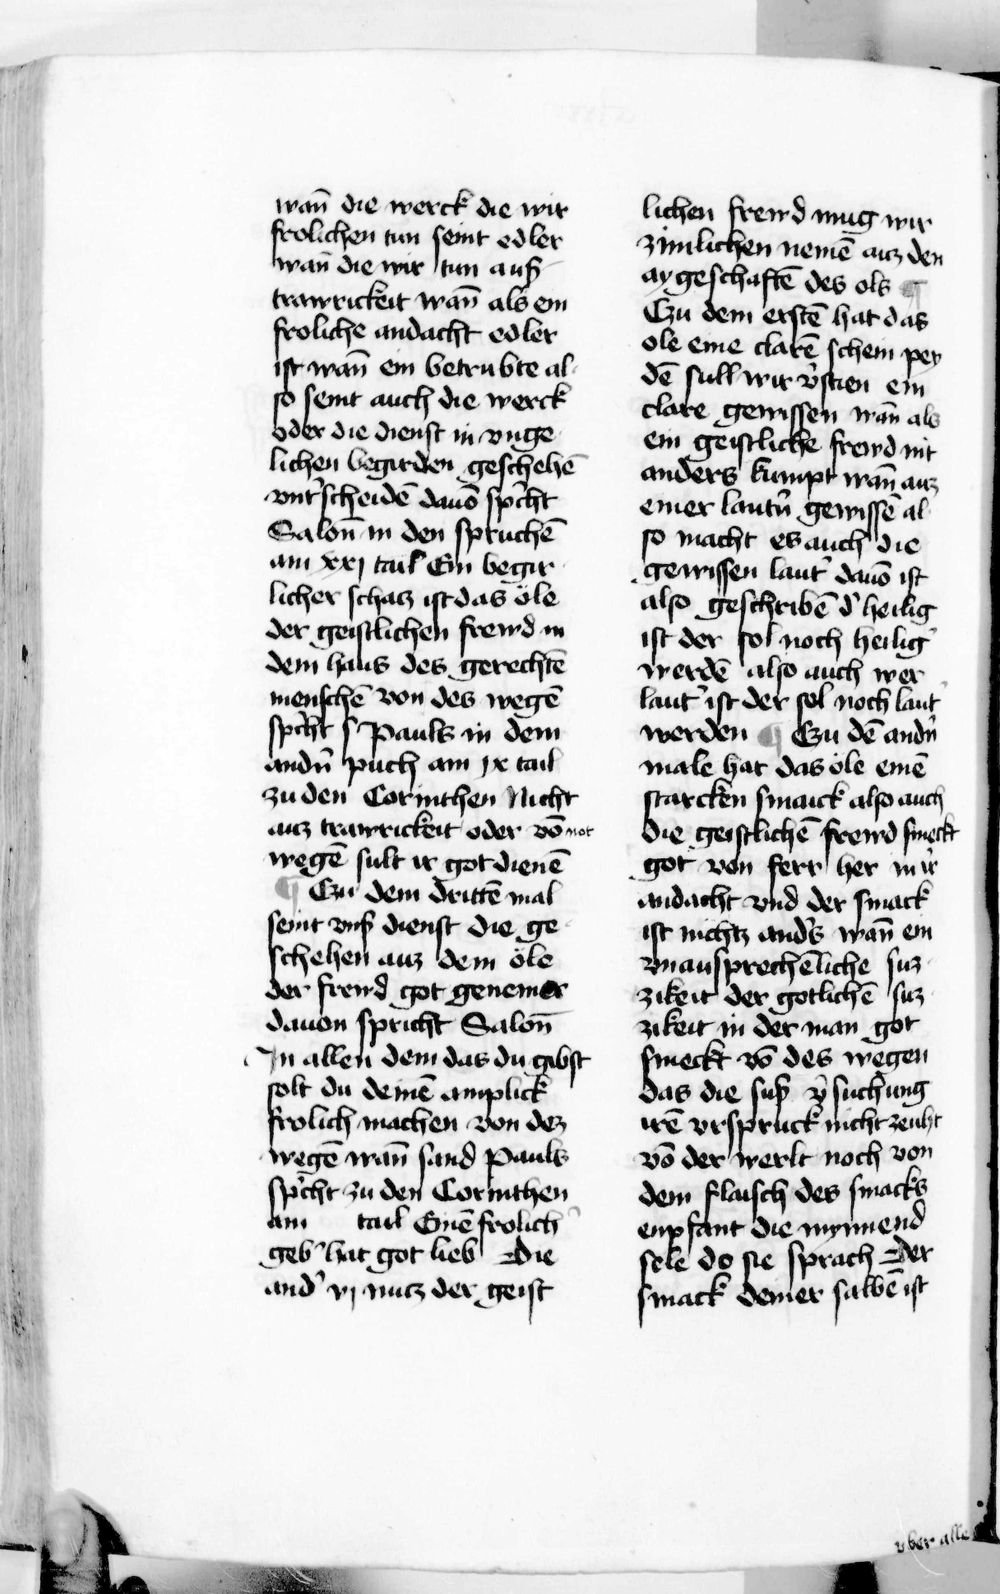 wan̄ die werck die wir
frolichen tun seint edler
wan̄ die wir tun auß
trawrickeit wan̄ als ein
froliche andacht edler
ist wan̄ ein betrubte al-
so seint auch die werck
oder die dienst in vnge
lichen begirden geschehē
vnt᾽scheidē dauō sp᾽cht
Salon̄ in den spruchē
am xxj tail Ein begir
licher schatz ist das öle
der geistlichen frewd in
dem haus des gerechtē
menschē von des wegē
sp᾽cht s Pauls in dem
andn᾽ puch am ix tail
zu den Corinthen Nicht
auz trawrickeit oder vō not
wegē sult ir got dienē
¶ Czu dem drittē mal
seint vnß dienst die ge
schehen auz dem öle
der frewd got genemer
dauon spricht Salon̄
In allen dem das du gibst
solt du deinē amplick
frolich machen von dez
wegē wan̄ sand Pauls
sp᾽cht zu den Corinthen
am tail Einē frolich᾽
geb᾽ hat got lieb Die
and᾽ vj nucz der geist
lichen frewd mug wir
zimlichen nemē auz den
aygeschaftē des ols ¶
Czu dem erstē hat das
ole eine clarē schein pey
dē sull wir v᾽stien ein
clare gewissen wan̄ als
ein geistliche frewd nit
anders kumpt wan̄ auz
einer lautn᾽ gewissē al
so macht es auch die
gewissen laut᾽ dauō ist
also geschribē d᾽ heilig
ist der sol noch heilig᾽
werdē also auch wer
laut᾽ ist der sol noch laut᾽
werden ¶ Czu dē andn᾽
male hat das öle einē
starcken smack also auch
die geistlichē frewd smeckt
got von ferr her in ir᾽
andacht vnd der smack
ist nichtz and᾽s wan̄ ein
vnausprechēliche suz
zikeit der gotlichē suz
zikeit in der man got
smeckt vō des wegen
das die suß v᾽suchung
irē vrspruck nicht zeuht
vō der werlt noch von
dem flaisch des smacks
enpfant die mynnend
sele do sie sprach Der
smack deiner salbē ist
vber alle